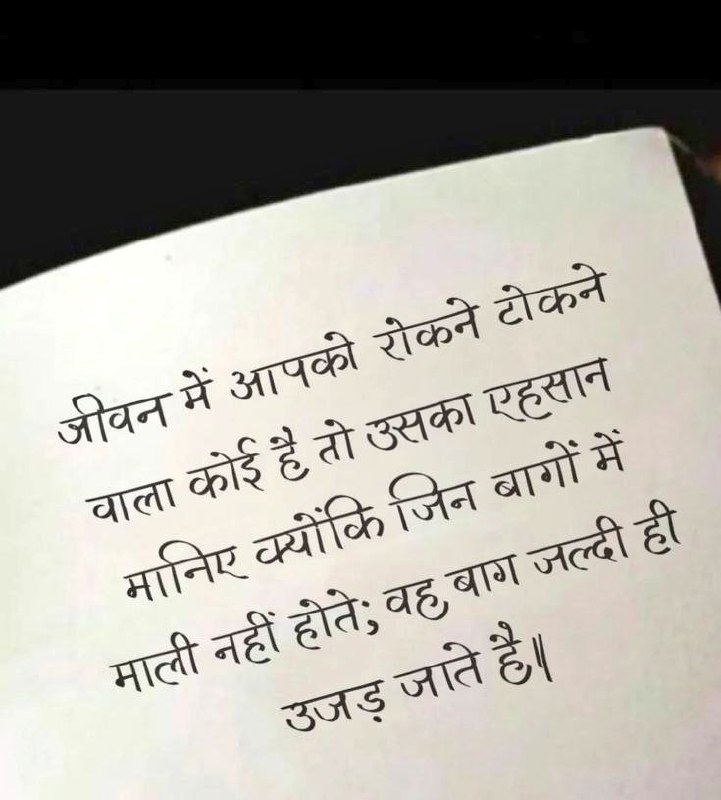 जीवन में आपको रोकने टोकने
वाला कोई है तो उसका एहसान
मानिए क्योंकि जिन बागों में
माली नहीं होते; वह बाग जल्दी ही
उजड़ जाते है॥